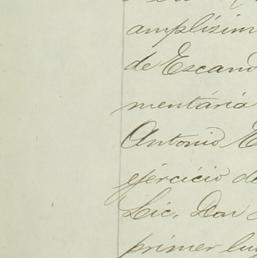 amplísim
de Escand
mentária
Antonio E
ejercicio de
Lic. Don
primer lu